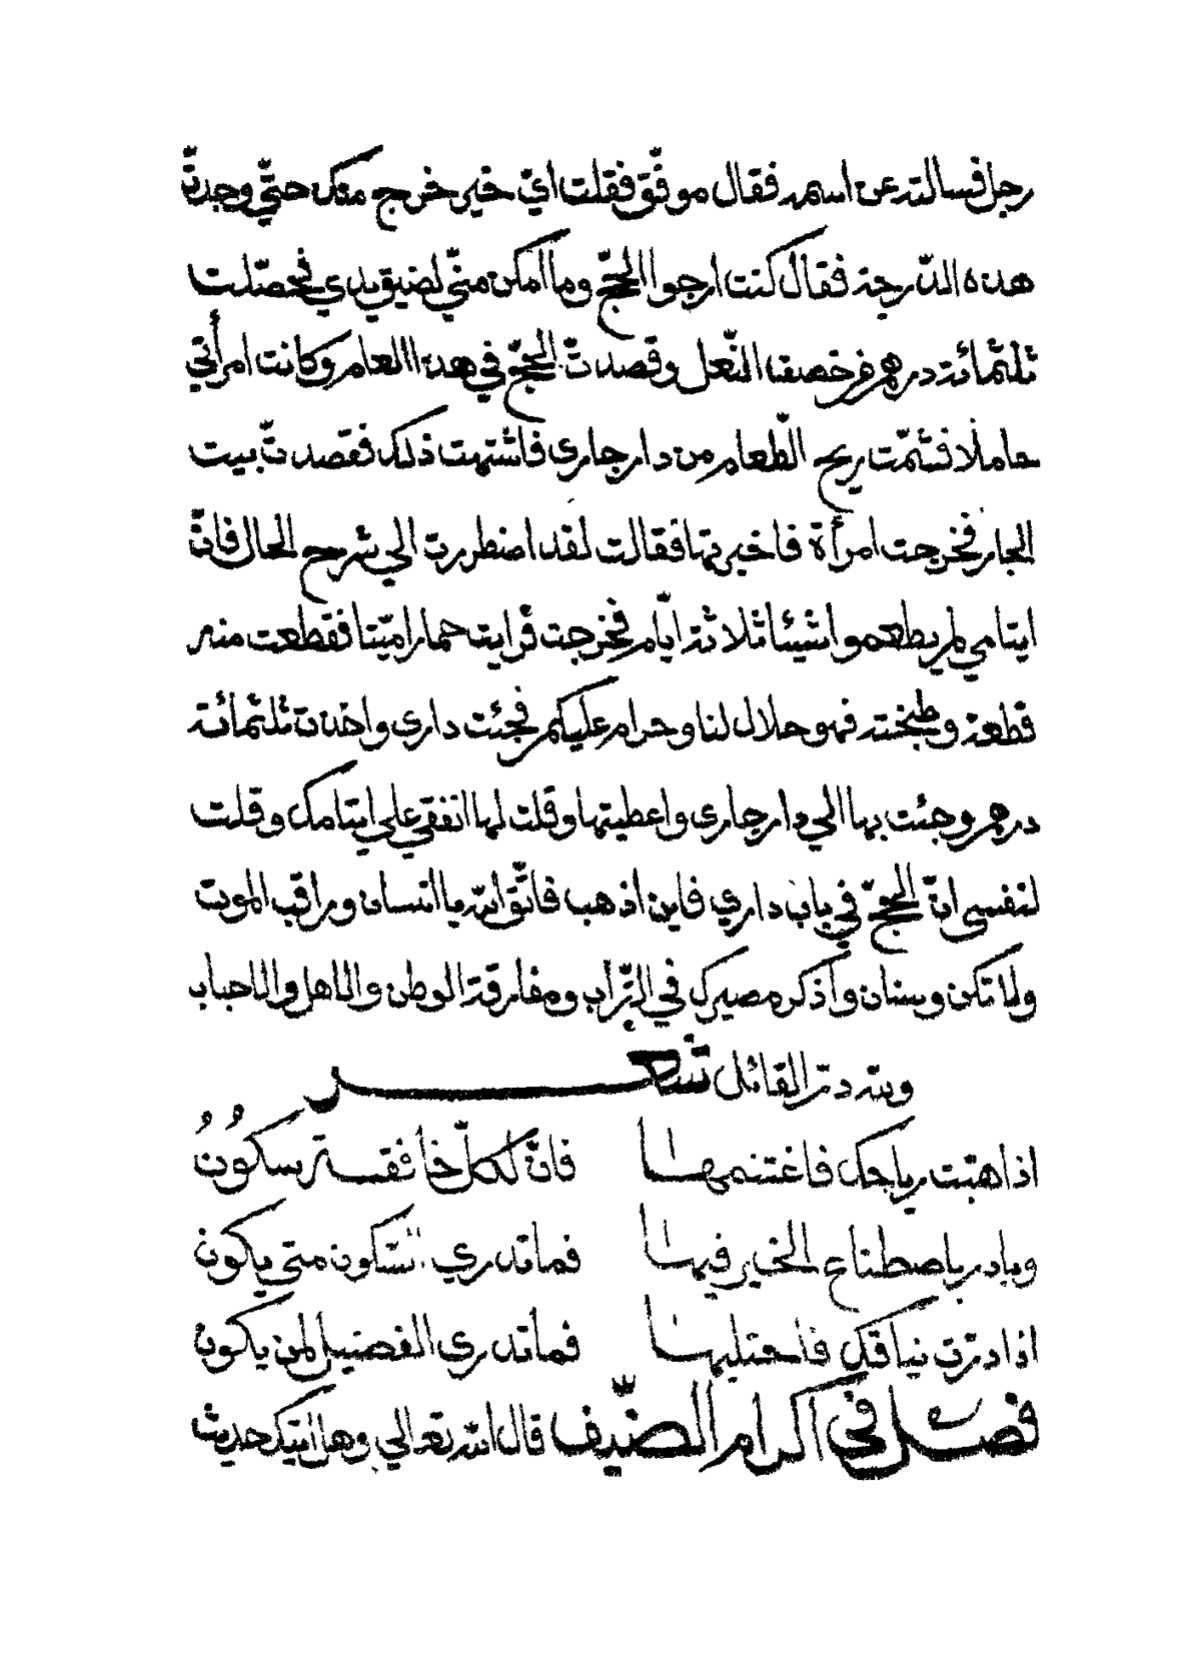 رجل فسالته عن اسمه فقال موفّق فقلت ايّ خير خرج منك حتّي وجدتّ
هذه الدّرجة فقال كنت ارجوا الحجّ وما امكن منّي لضيق يدي فحصّلت
ثلثمائة درهم من خصف النّعل وقصدتّ الحجّ في هذا العام وكانت امرأتي
حاملًا فشمّت ريح الطّعام من دار جاري فاشتهت ذلك فقصدتّ بيت
الجار فخرجت امرأة فاخبرتها فقالت لقد اضطررت الي شرح الحال فانّ
ايتامي لم يطعموا شيئا ثلاثة ايّام فخرجت فرايت حمارا ميّتا فقطعت منه
قطعة وطبخته فهو حلال لنا وحرام عليكم فجئت داري واخذت ثلثمائة
درهم وجئت بها الي دار جاري واعطيتها وقلت لها انفقي علي ايتامك وقلت
لنفسي انّ الحجّ في باب داري فاين اذهب فاتّق الله يا انسان وراقب الموت
ولا تكن وسنان وأذكر مصيرك في التّراب ومفارقة الوطن والاهل والاحباب
ولله درّ القائل شعر
اذا هبّت رياحك فاغتنمها فانّ لكلّ خافقة سكُونُ
وبادر باصطناع الخير فيها فما تدري السّكون متي يكون
اذا درّت نياقك فاحتليها فما تدري الفصيل لمن يكون
فصل في اكرام الضّيف قال الله تعالي وهل اتيك حديث